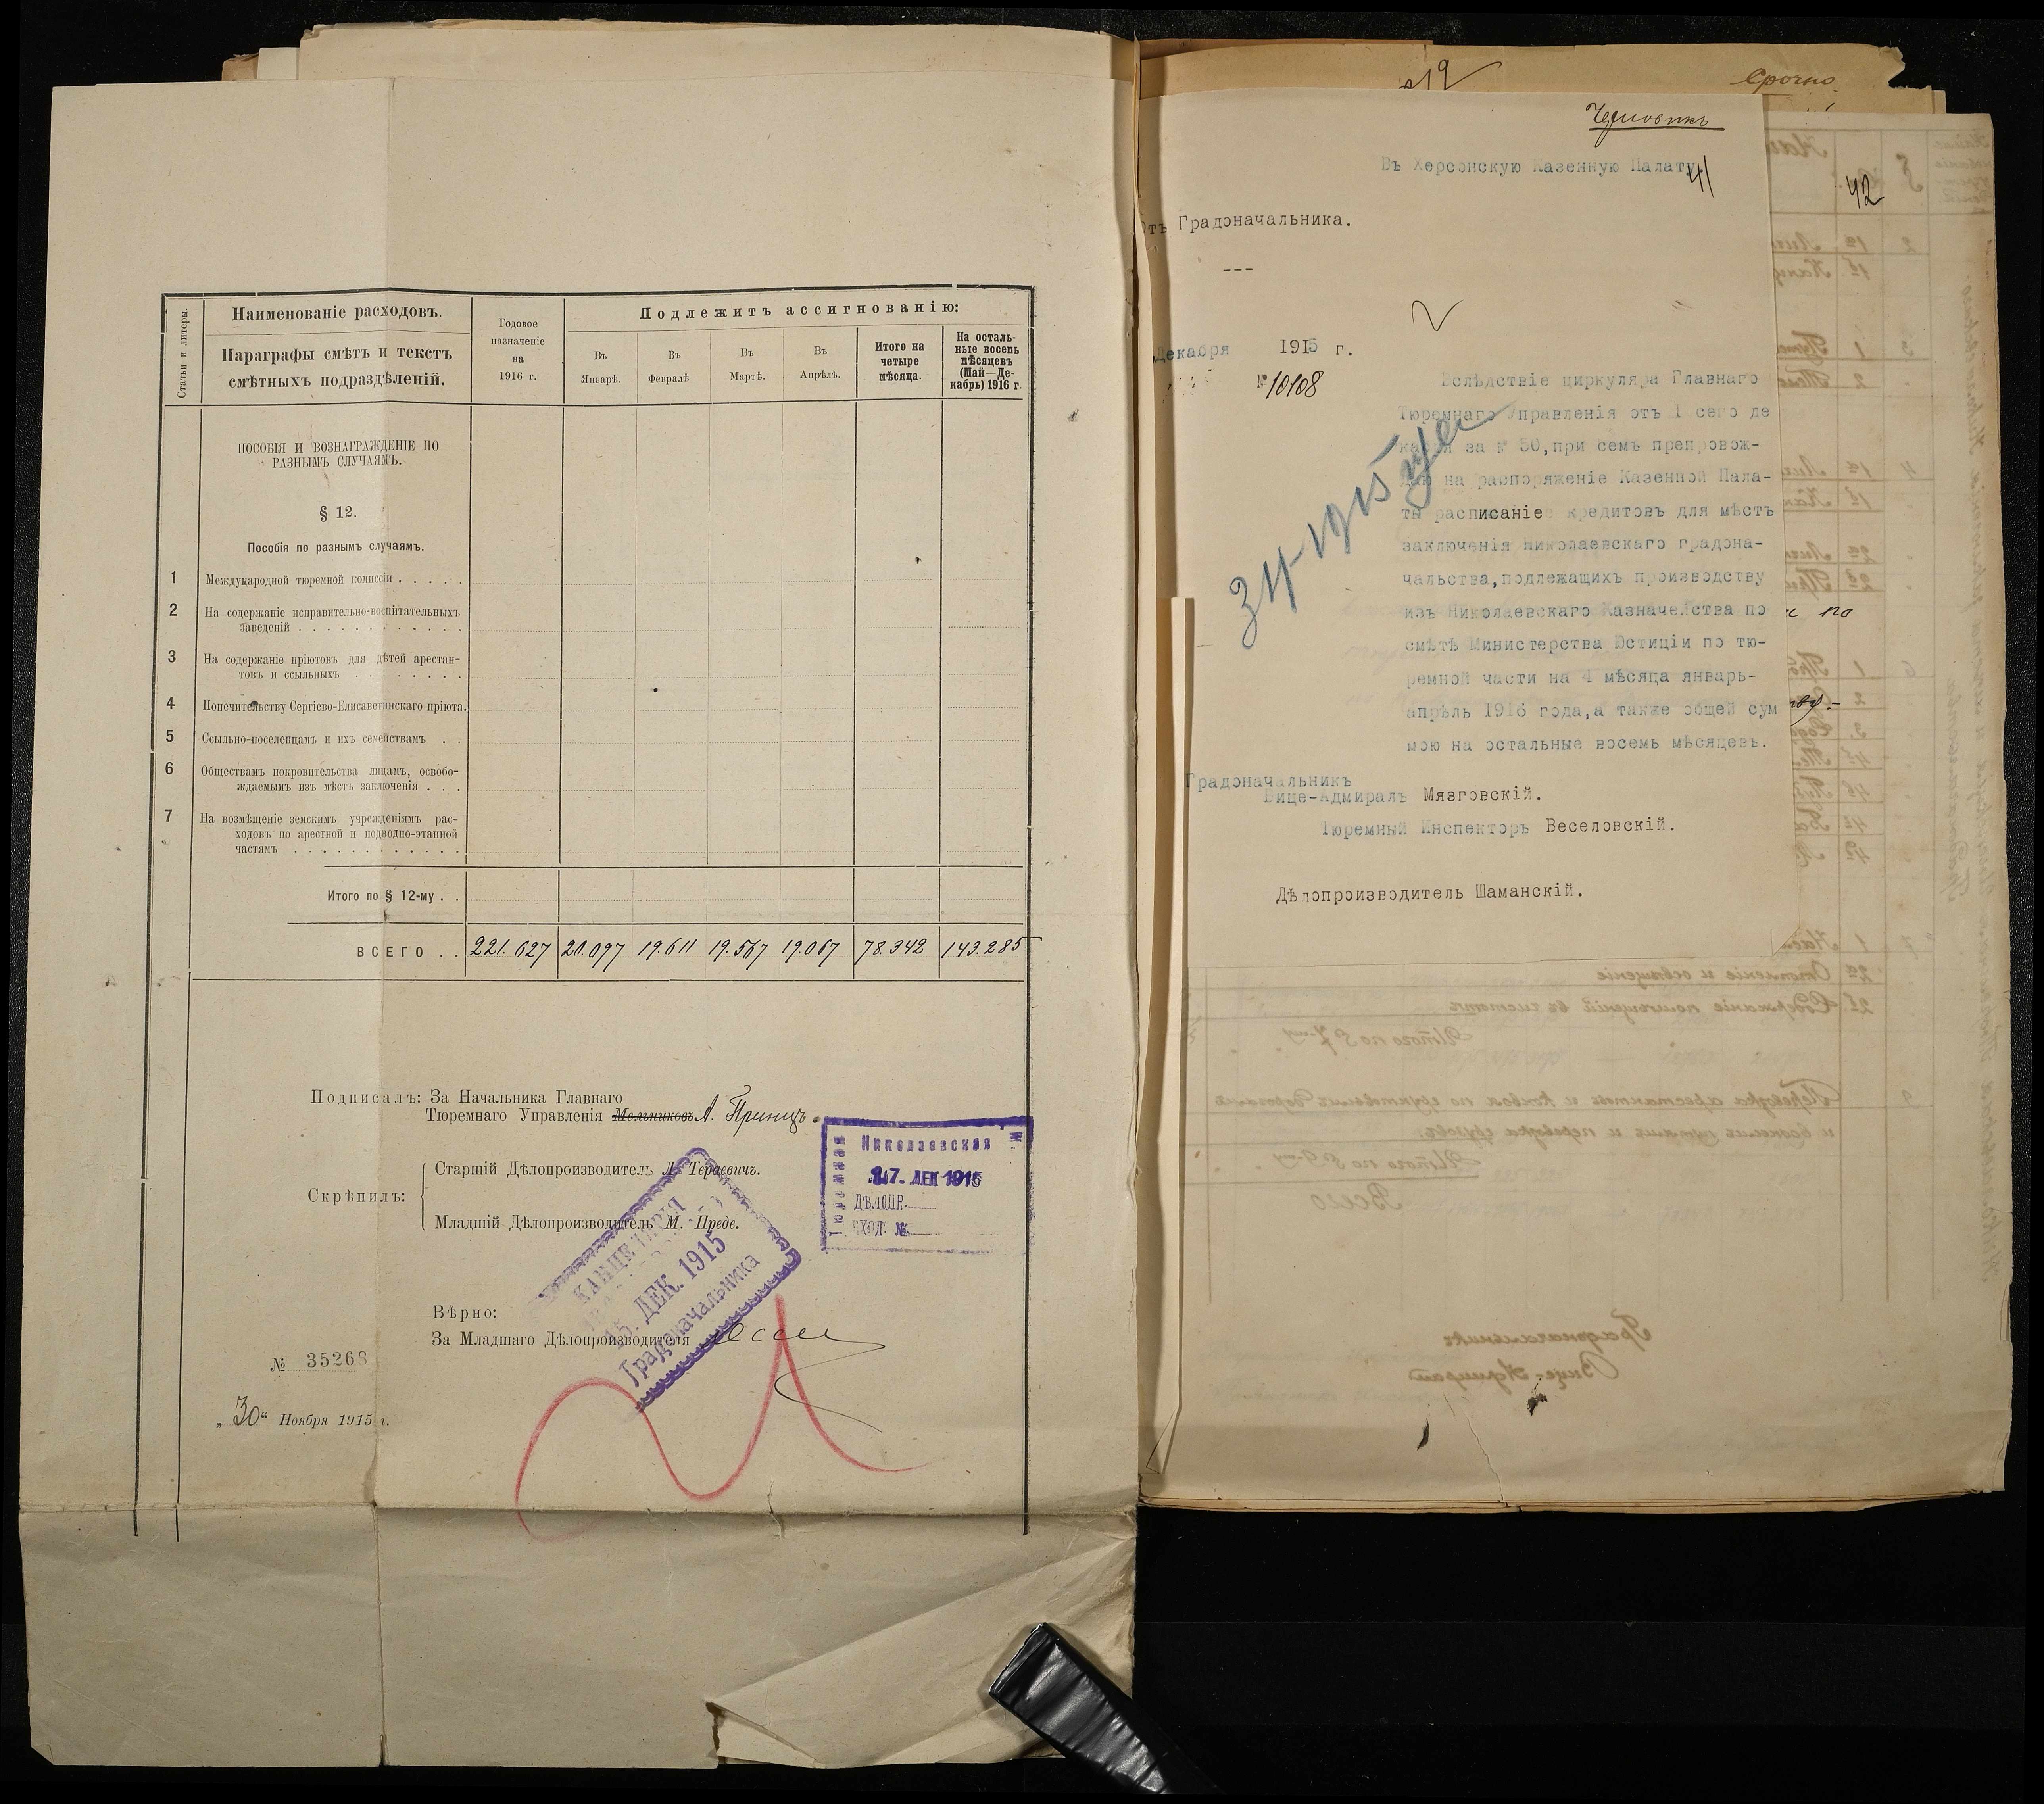 Статьи и литеры.
Наименованіе расходовъ.
Параграфы смѣтъ и текстъ
смѣтныхъ подраздѣленій.
Годовое
назначеніе
на
1916 г.
Подлежитъ ассигнованію:
Въ
Январѣ.
Въ
Февралѣ
Въ
Мартѣ.
Въ
Апрѣлѣ.
Итого на
четыре
мѣсяца.
На осталь-
ные восемь
мѣсяцевъ
(Май—Де-
кабрь) 1916 г.
ПОСОБІЯ И ВОЗНАГРАЖДЕНІЕ ПО
РАЗНЫМЪ СЛУЧАЯМЪ.
§ 12.
Пособія по разнымъ случаямъ.
1 Международной тюремной комиссіи . . . . .
2 На содержаніе исправительно-воспитательныхъ
заведеній . . . . . . . . . . . .
3 На содержаніе пріютовъ для дѣтей арестан-
товъ и ссыльныхъ . . . . . . . .
4 Попечительству Сергіево-Елисаветинскаго пріюта.
5 Ссыльно-поселенцамъ и ихъ семействамъ . .
6 Обществамъ покровительства лицамъ, освобо-
ждаемымъ изъ мѣстъ заключенія . . .
7 На возмѣщеніе земскимъ учрежденіямъ рас-
ходовъ по арестной и подводно-этапной
частямъ . . . . . . . . . . . .
Итого по § 12-му . .
ВСЕГО . . 221.627 20.097 19.611 19.567 19.067 78.342 143.285
Подписалъ: За Начальника Главнаго
Тюремнаго Управленія Мельниковъ А. Принцъ.
Скрѣпилъ:
Старшій Дѣлопроизводитель Л. Тераевичъ.
Младшій Дѣлопроизводитель М. Преде.
Николаевская
Тюремная
ДЕК 1915
ДѢЛОПР.
ВХОД. №
КАНЦЕЛЯРІЯ
15. ДЕК. 1915
Градоначальника
Вѣрно:
За Младшаго Дѣлопроизводителя
№ 35268
„30“ Ноября 1915 г.
Срочно
Черновикъ
Въ Херсонскую Казенную Палату
41
42
Отъ Градоначальника.
---
Декабря 1915 г.
№ 10108
Вслѣдствіе циркуляра Главнаго
Тюремнаго Управленія отъ 1 сего де
кабря за № 50,при семъ препровож-
даю на распоряженіе Казенной Пала-
ты расписаніе кредитовъ для мѣстъ
заключенія николаевскаго градона-
чальства,подлежащихъ производству
изъ Николаевскаго Казначейства по
смѣтѣ Министерства Юстиціи по тю-
ремной части на 4 мѣсяца январь-
апрѣль 1916 года,а также общей сум
мою на остальные восемь мѣсяцевъ.
Градоначальникъ
Вице-Адмиралъ Мязговскій.
Тюремный Инспекторъ Веселовскій.
Дѣлопроизводитель Шаманскій.